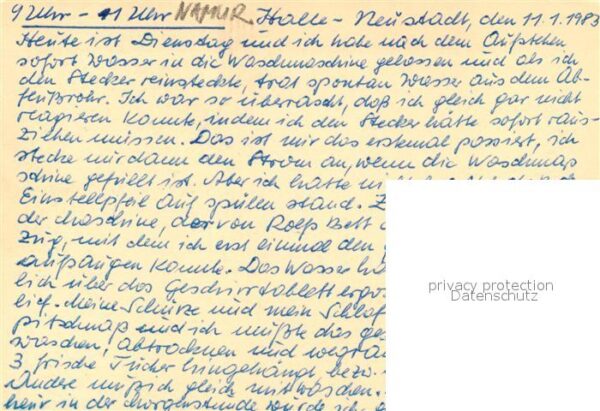 9 Uhr - 11 Uhr NAMUR Halle - Neustadt, den 11.1.1983
Heute ist Dienstag und ich habe nach dem Aufstehen
sofort Wasser in die Waschmaschine gelassen und als ich
den Stecker reinsteckte, trat spontan Wasser aus dem Ab-
flußrohr. Ich war so überrascht, daß ich gleich gar nicht
reagieren konnte, indem ich den Stecker hätte sofort raus-
ziehen müssen. Das ist mir das erstemal passiert, ich
stecke mir dann den Strom an, wenn die Waschma
schine gefüllt ist. Aber ich hatte
Einstellpfeil auf spülen stand.
der Maschine, der von Rolfs Bett
zug, mit dem ich erst einmal den
auffangen konnte. Das Wasser
lich über das Geschirrtablett
lief. Meine Schürze und mein
pitschnaß und ich mußte das
waschen, abtrocknen und
3 frische Tücher hingehängt bezw.
Andere muß ich gleich mitwaschen.
in der Morgenstunde
privacy protection
Datenschutz